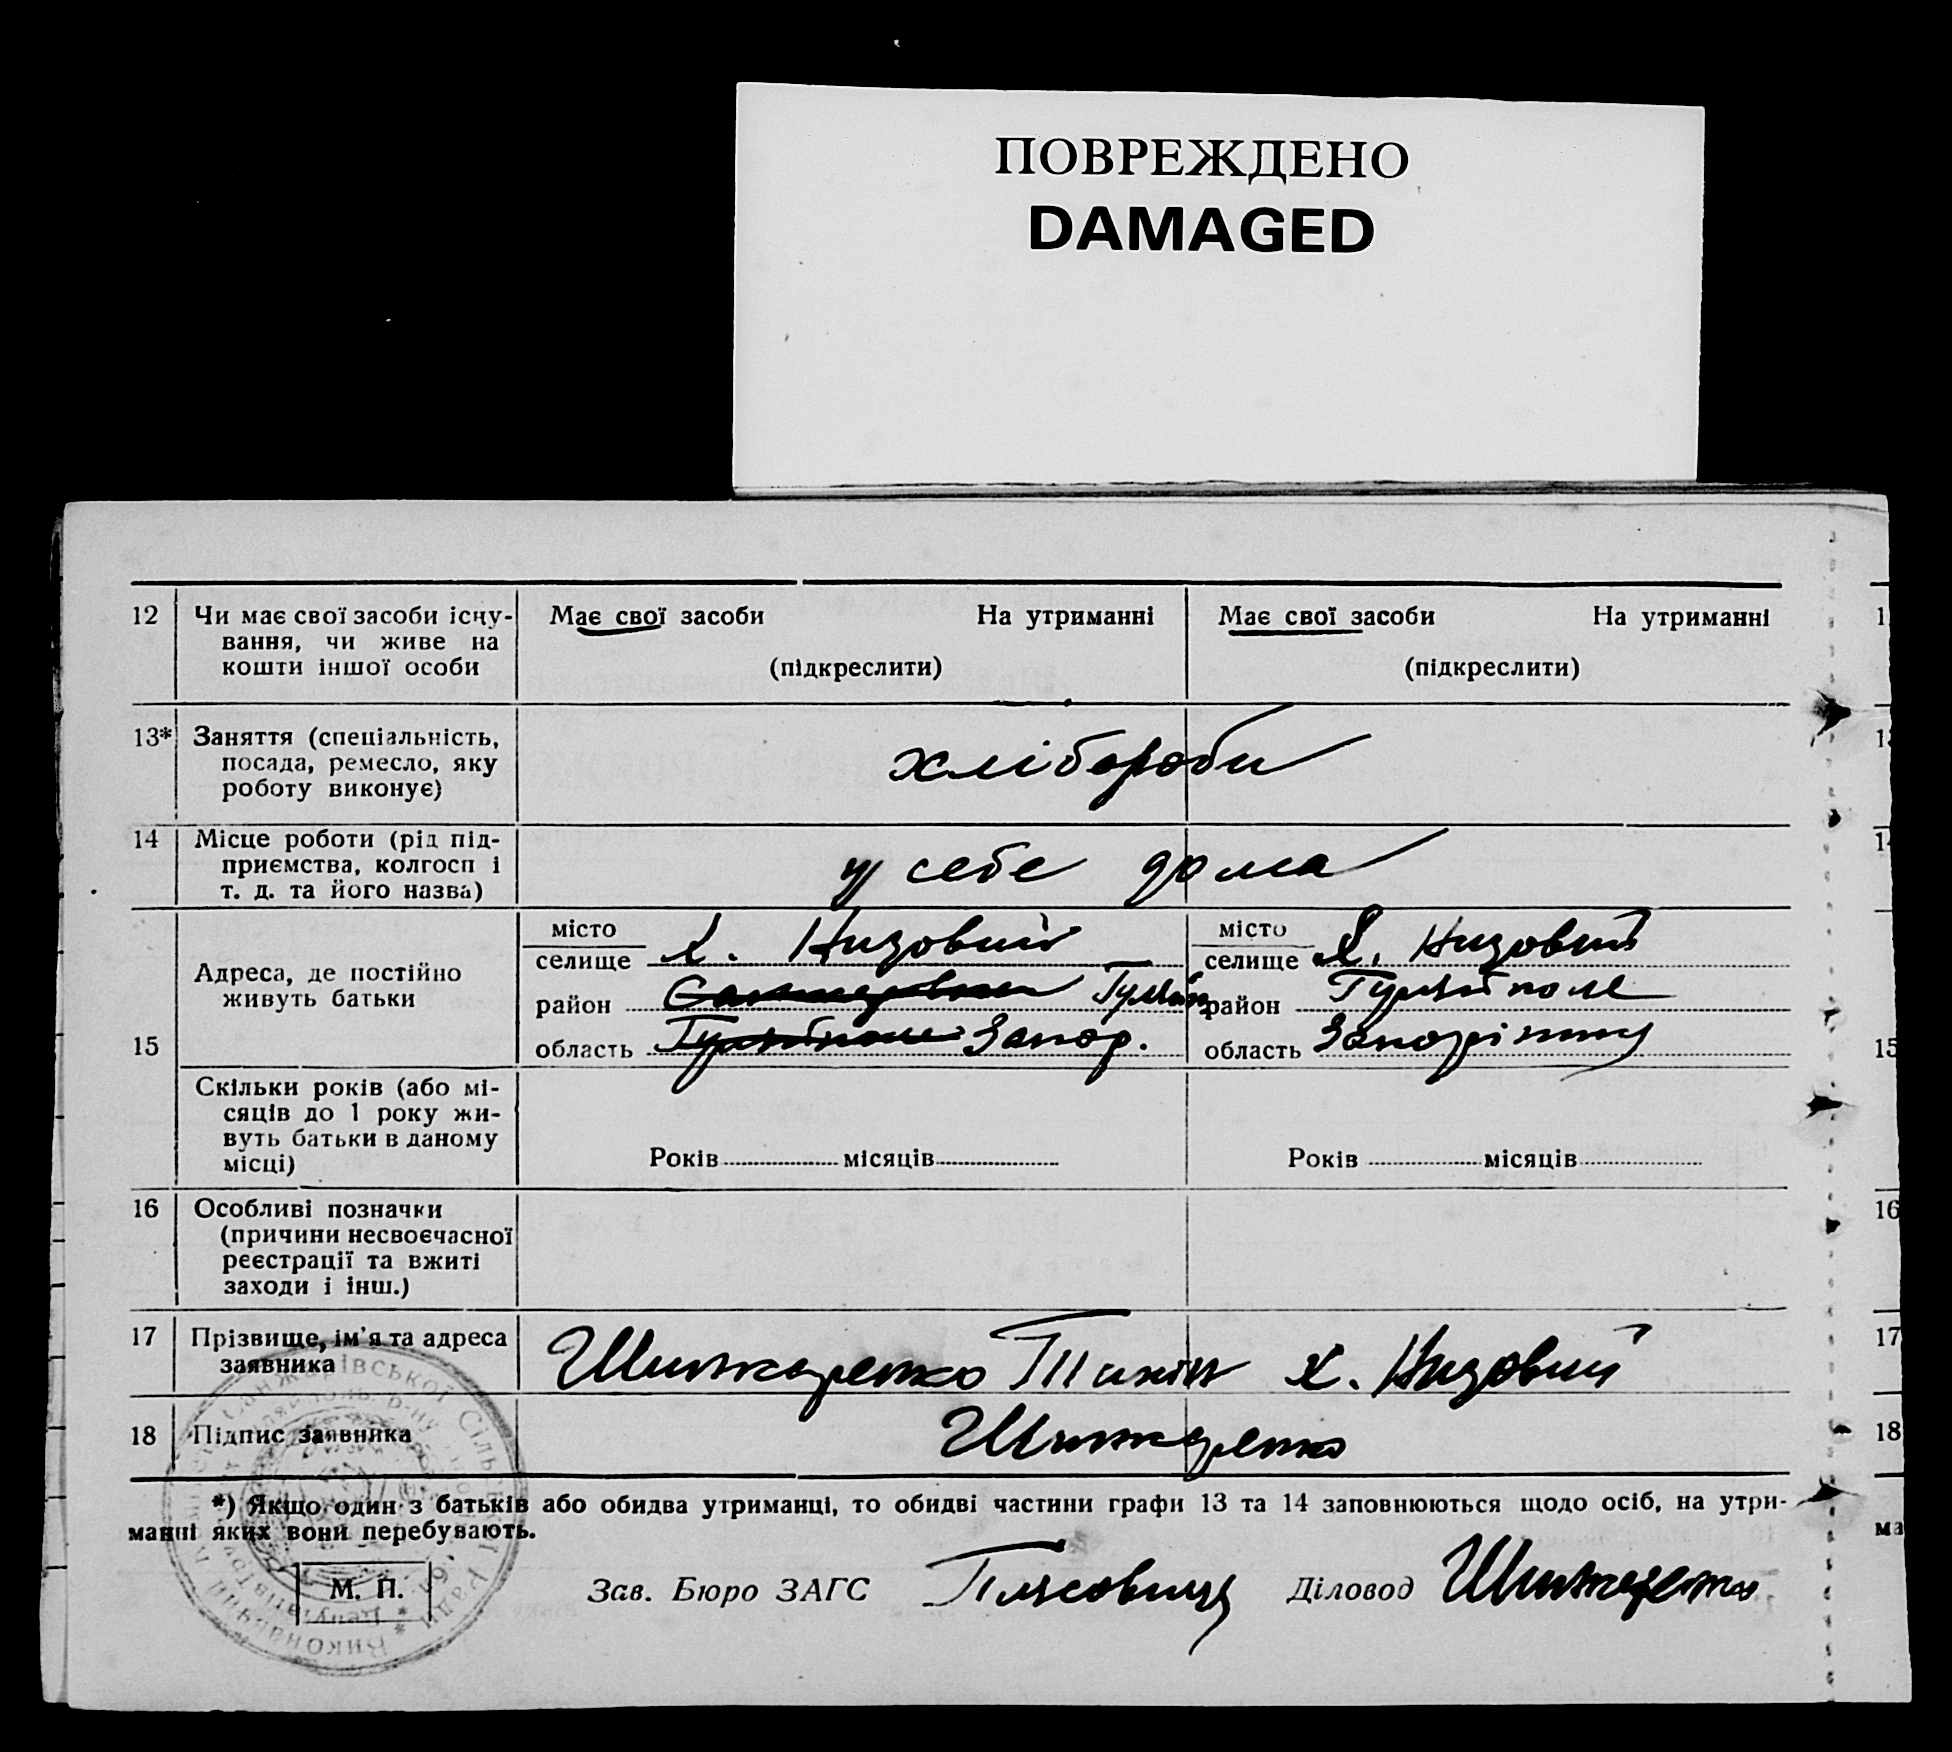 ПОВРЕЖДЕНО
DAMAGED
12 Чи має свої засоби існу-
вання, чи живе на
кошти іншої особи
Має свої засоби На утриманні
(підкреслити)
Має свої засоби На утриманні
(підкреслити)
13* Заняття (спеціальність,
посада, ремесло, яку
роботу виконує)
хлібороби
14 Місце роботи (рід під-
приємства, колгосп і
т. д. та його назва)
у себе дома
15
Адреса, де постійно
живуть батьки
місто
селище х. Низовий
район Гуляйп
область Гуляйполе Запор.
місто
селище х. Низовий
район Гуляйполе
область
Скільки років (або мі-
сяців до 1 року жи-
вуть батьки в даному
місці)
Років місяців
Років місяців
16 Особливі позначки
(причини несвоєчасної
реєстрації та вжиті
заходи і інш.)
17 Прізвище, ім'я та адреса
заявника
Шинкаренко х. Низовий
18 Підпис заявника
Шинкаренко
*) Якщо один з батьків або обидва утриманці, то обидві частини графи 13 та 14 заповнюються щодо осіб, на утри-
манні яких вони перебувають.
М. П.
Зав. Бюро ЗАГС
Діловод Шинкаренко
Санжарівської Сільської Ради
12
13
14
15
16
17
18
ма